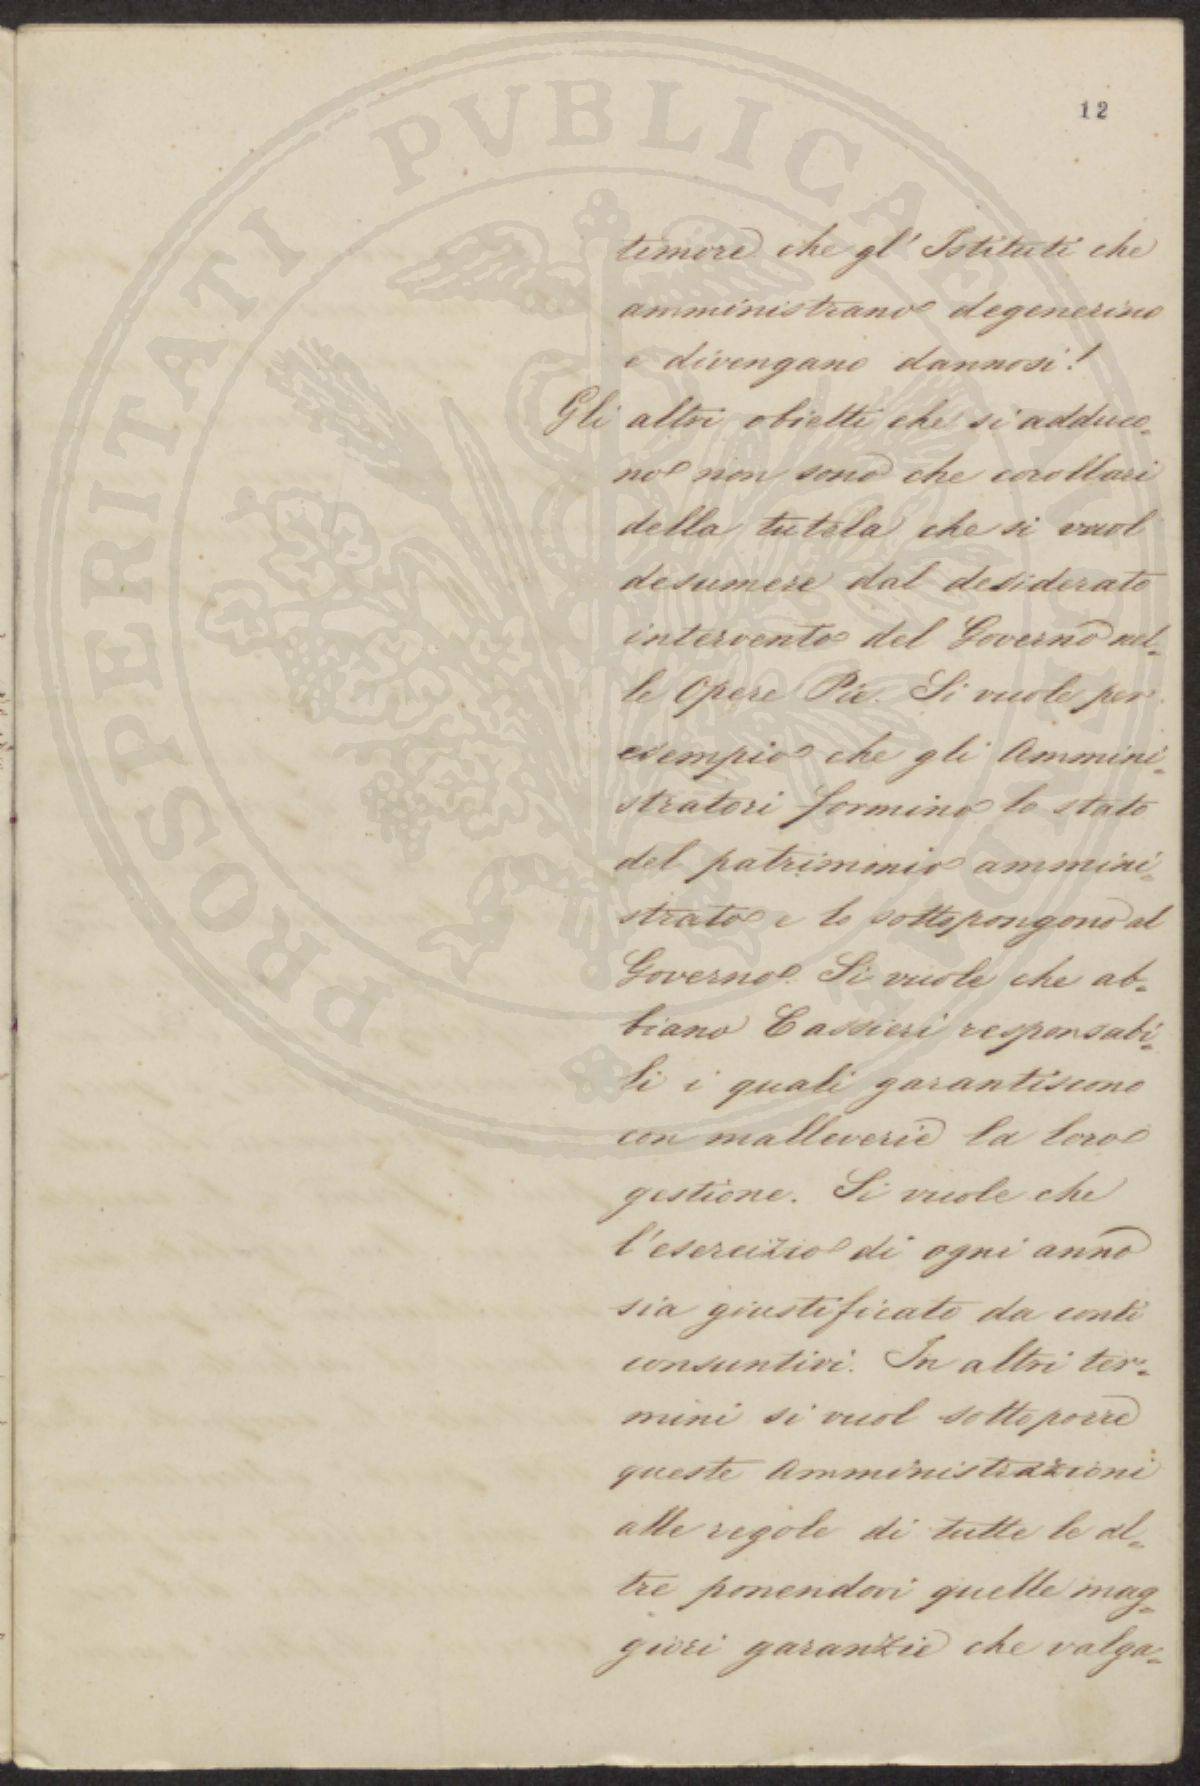 12
temere che gl' Istituti che
amministrano degenerino
e divengano dannosi!
Gli altri obietti che si adduco=
no non sono che corollari
della tutela che si vuol
desumere dal desiderato
intervento del Governo nel=
le Opere Pie. Si vuole per
esempio che gli Ammini=
stratori formino lo stato
del patrimonio ammini=
strato e lo sottopongono al
Governo. Si vuole che ab=
biano Cassieri responsabi=
li i quali garantiscono
con malleverie la loro
gestione. Si vuole che
l'esercizio di ogni anno
sia giustificato da conti
consuntivi. In altri ter=
mini si vuol sottoporre
queste Amministrazioni
alle regole di tutte le al=
tre ponendovi quelle mag=
giori garanzie che valga=
PROSPERITATI PVBLICAE AVGENDAE